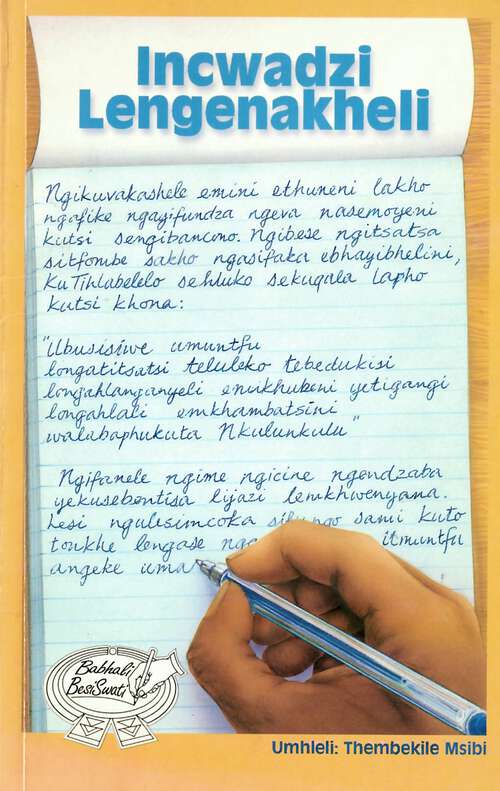 Incwadzi
Lengenakheli
Ngikuvakashele emini ethuneni lakho
ngafike ngayifundza ngeva nasemoyeni
kutsi sengibancono. Ngibese ngitsatsa
sitfombe sakho ngasifaka ebhayibhelini,
KuTihlabelelo sehluko sekuqala lapho
kutsi khona:
"Ubusisiwe umuntfu
longatitsatsi teluleko tebedukisi
longahlanganyeli emikhubeni yetigangi
longahlali emkhambatsini
walabaphukuta Nkulunkulu"
Ngifanele ngime ngicine ngendzaba
yekusebentisa lijazi lemkhwenyana.
Lesi ngulesimcoka sami kuto
tonkhe lengase itmuntfu
angeke uma
Babhali
BesiSwati
Umhleli: Thembekile Msibi